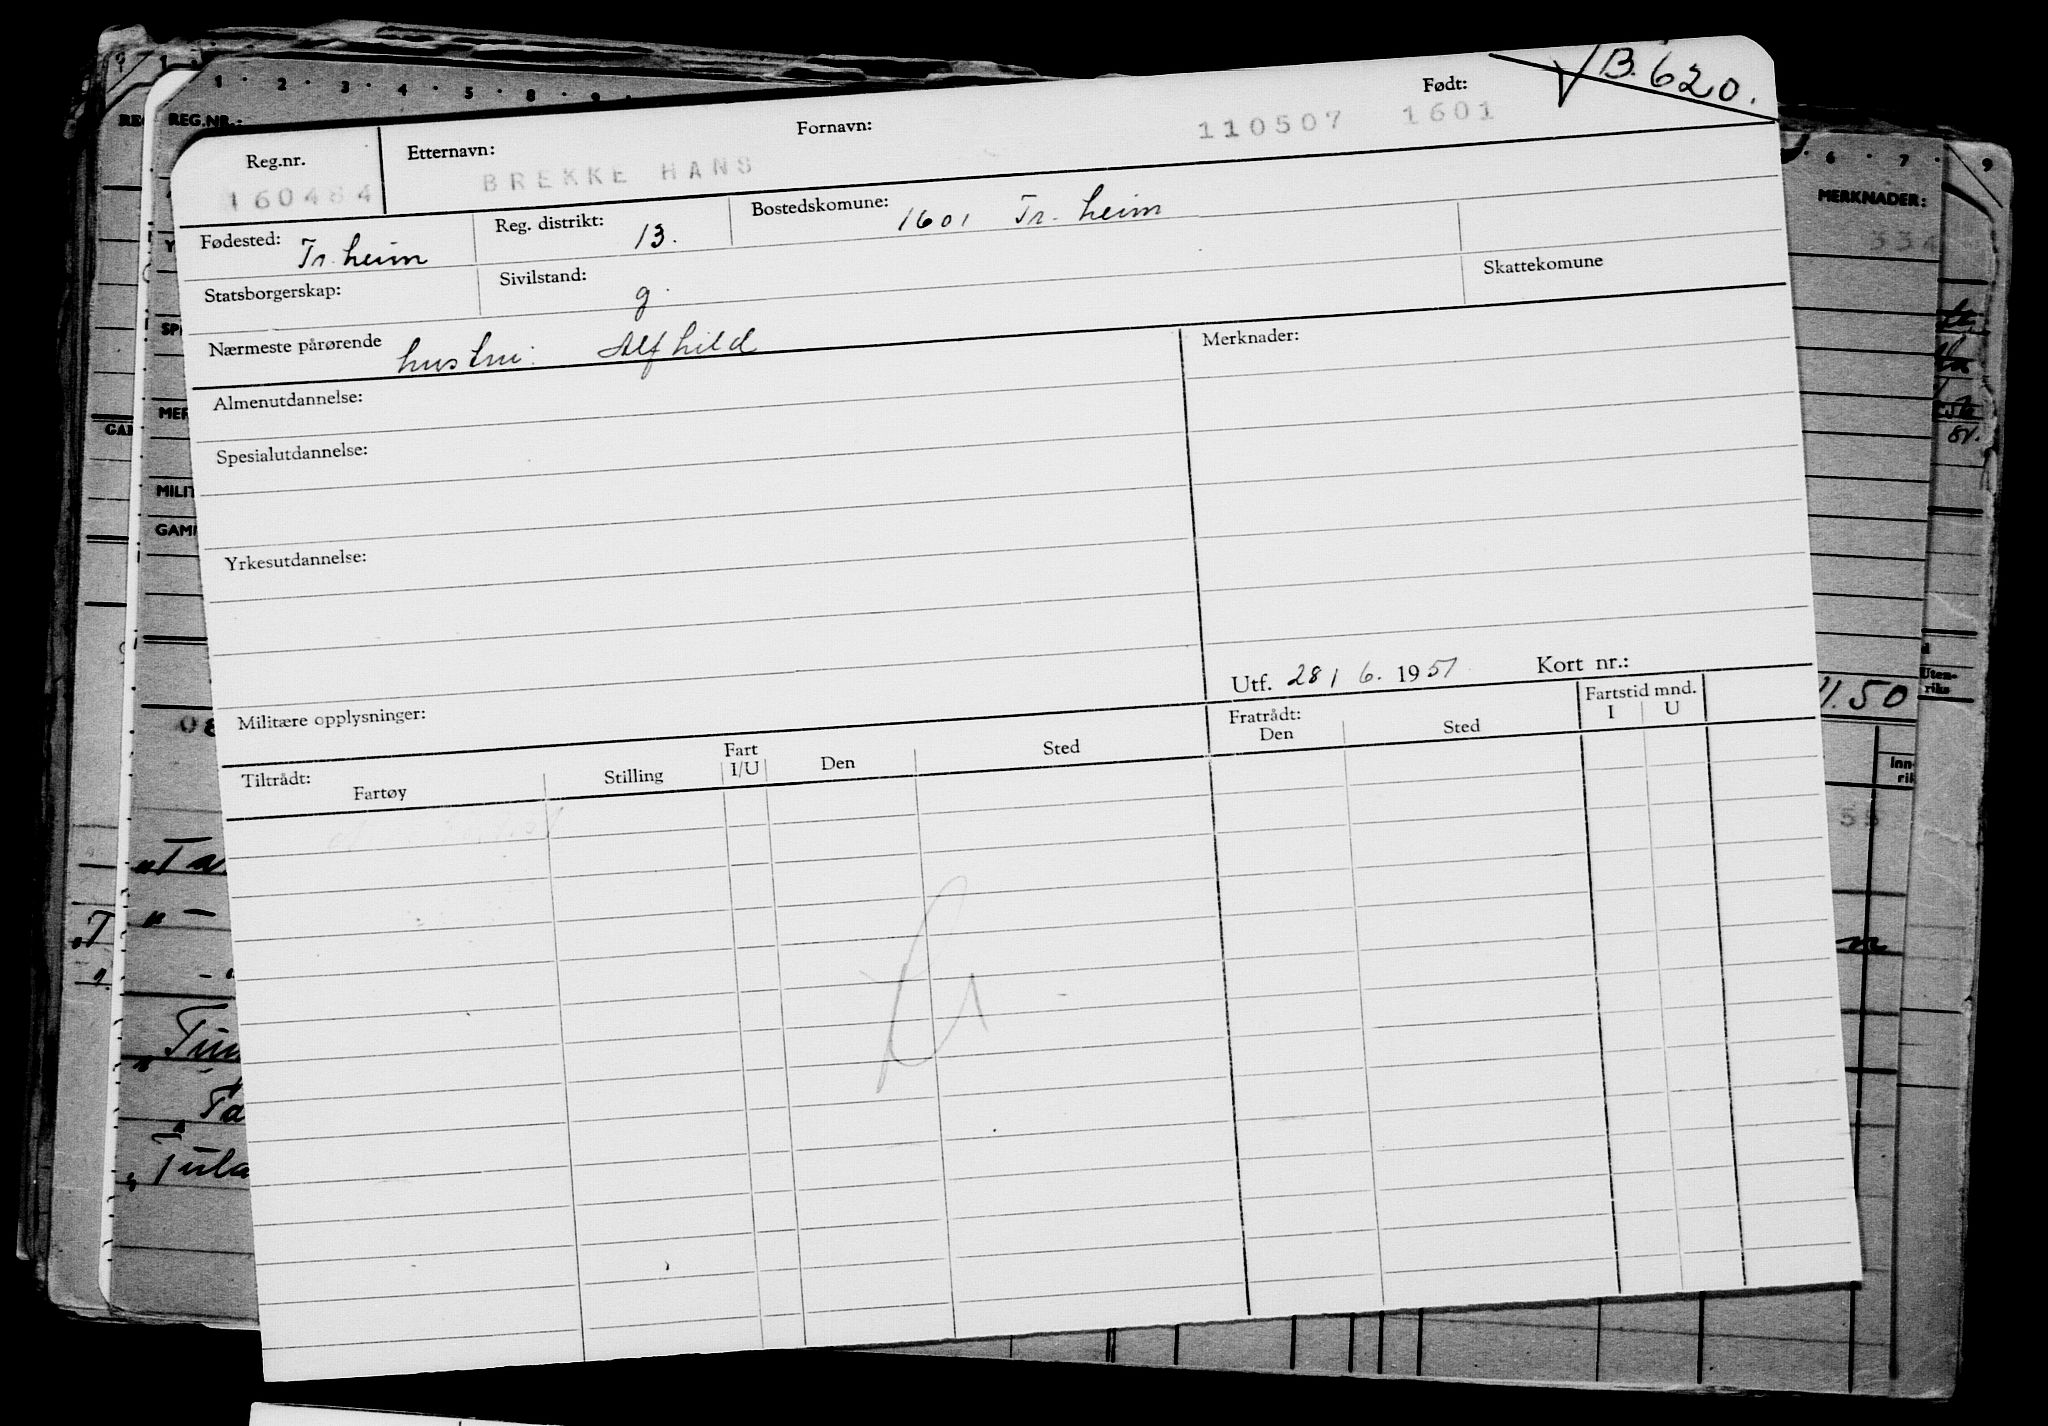 B. 620.
Reg.nr. Etternavn: Fornavn: Født:
160484 BREKKE HANS 110507 1601
Fødested: Tr.heim Reg. distrikt: 13. Bostedskomune: 1601 Tr. heim
Statsborgerskap: Sivilstand: g. Skattekomune
Nærmeste pårørende hustru: Alfhild Merknader:
Almenutdannelse:
Spesialutdannelse:
Yrkesutdannelse:
Utf. 28/6. 1951 Kort nr.:
Militære opplysninger:
Tiltrådt: Fartøy Stilling Fart I/U Den Sted Fratrådt: Den Sted Fartstid mnd. I U
1 2 3 4 5 8 9
REG.NR.:
GAM
MILIT
6 7 9
MERKNADER:
334
Uten-
riks
11.50
55